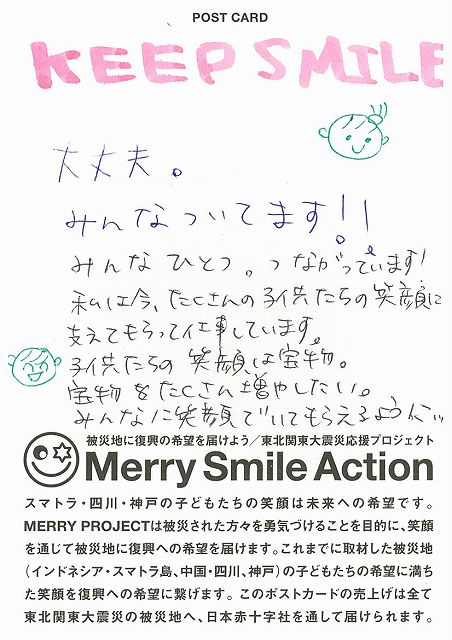 POST CARD
KEEP SMILE
大丈夫。
みんなついてます!!
みんなひとつ。つながっています!
私は今、たくさんの子供たちの笑顔に
支えてもらって仕事しています。
子供たちの笑顔は宝物。
宝物をたくさん増やしたい。
みんなに笑顔でいてもらえるように
被災地に復興の希望を届けよう/東北関東大震災応援プロジェクト
Merry Smile Action
スマトラ・四川・神戸の子どもたちの笑顔は未来への希望です。
MERRY PROJECTは被災された方々を勇気づけることを目的に、笑顔
を通じて被災地に復興への希望を届けます。これまでに取材した被災地
(インドネシア・スマトラ島、中国・四川、神戸)の子どもたちの希望に満ち
た笑顔を復興への希望に繋げます。このポストカードの売上げは全て
東北関東大震災の被災地へ、日本赤十字社を通して届けられます。